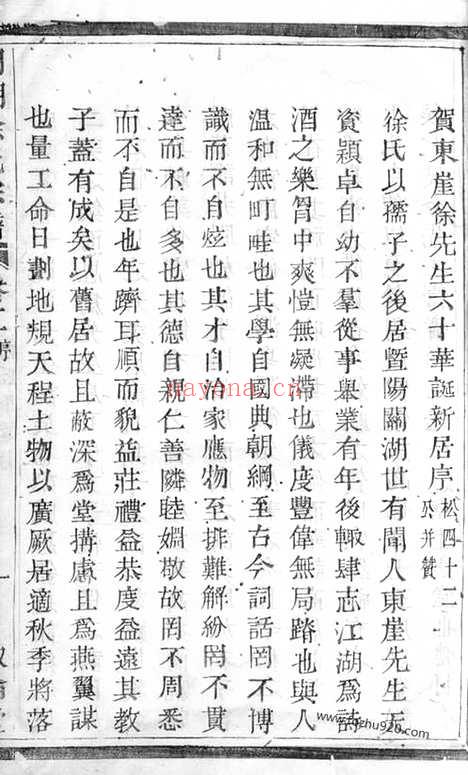 賀東崖徐先生六十華誕新居序松四十二
公并贊
徐氏以孺子之後居暨陽關湖世有聞人東崖先生天
資穎卓自幼不羣從事舉業有年後輙肆志江湖爲詩
酒之樂胷中爽愷無凝滯也儀度豐偉無局蹐也與人
温和無町畦也其學自國典朝綱至古今詞話罔不博
識而不自炫也其才自治家應物至排難解紛罔不貫
達而不自多也其德自親仁善隣睦婣敬故罔不周悉
而不自是也年躋耳順而貌益莊禮益恭度益遠其教
子蓋有成矣以舊居故且蔽深爲堂搆慮且爲燕翼謀
也量工命日劃地規天程土物以廣厥居適秋季將落
nayona.cn
zhehu920.com